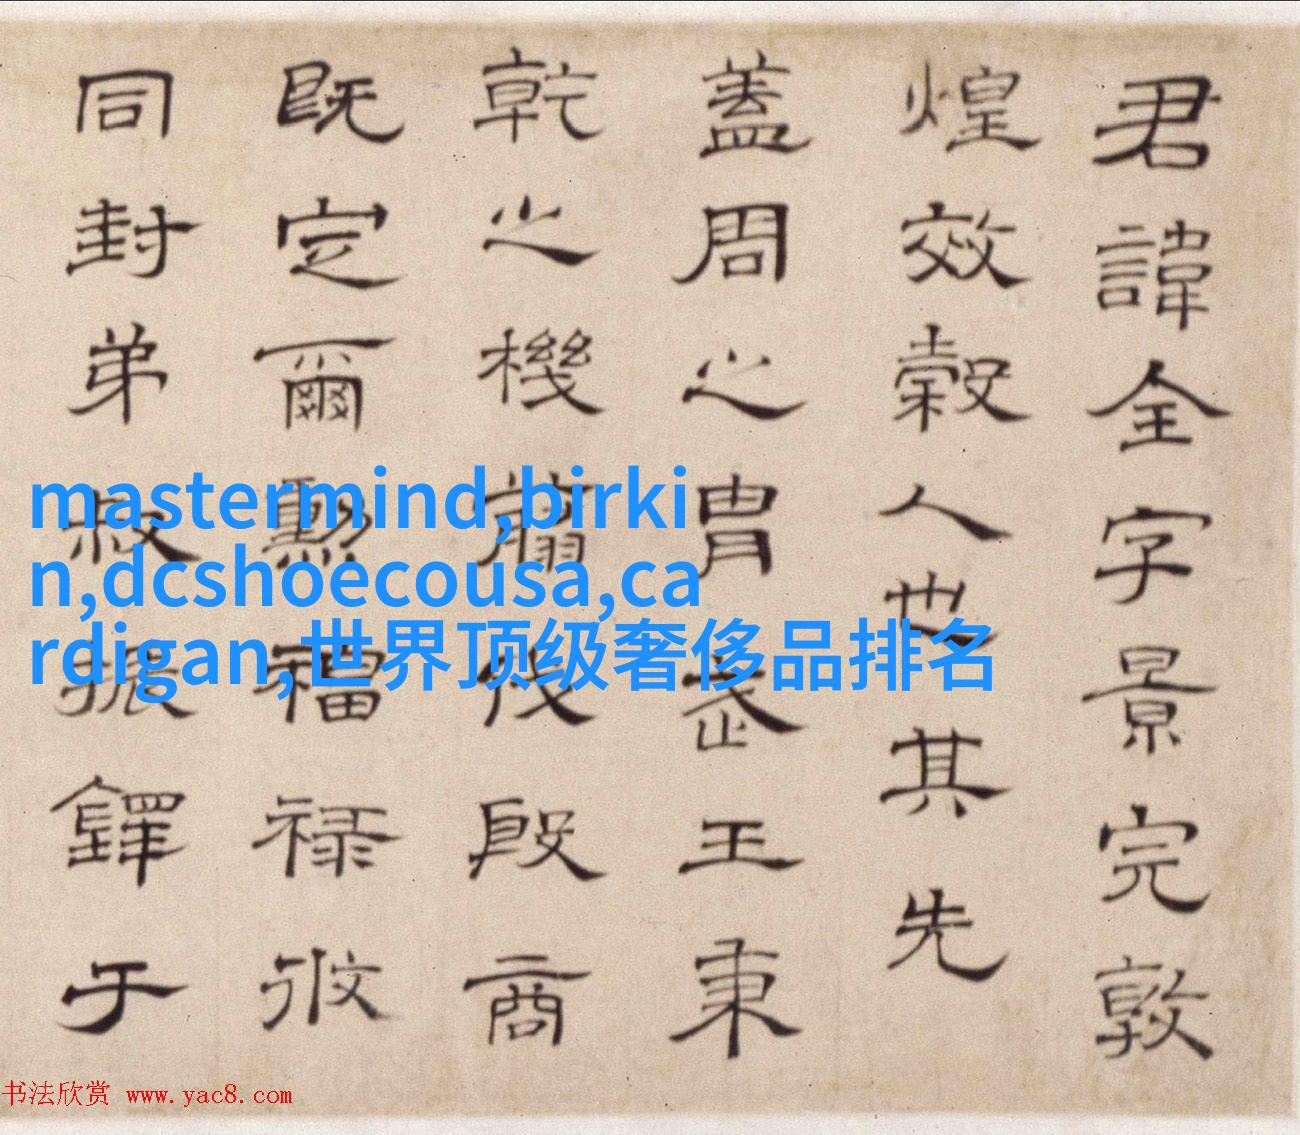 君諱全字景完敦
煌效穀人也其先
蓋周之胄武王秉
乾之機翦伐殷商
既定爾勲福禄攸
同封弟叔振鐸于
mastermind,birki
n,dcshoecousa,ca
rdigan,世界顶级奢侈品排名
书法欣赏 www.yac8.com